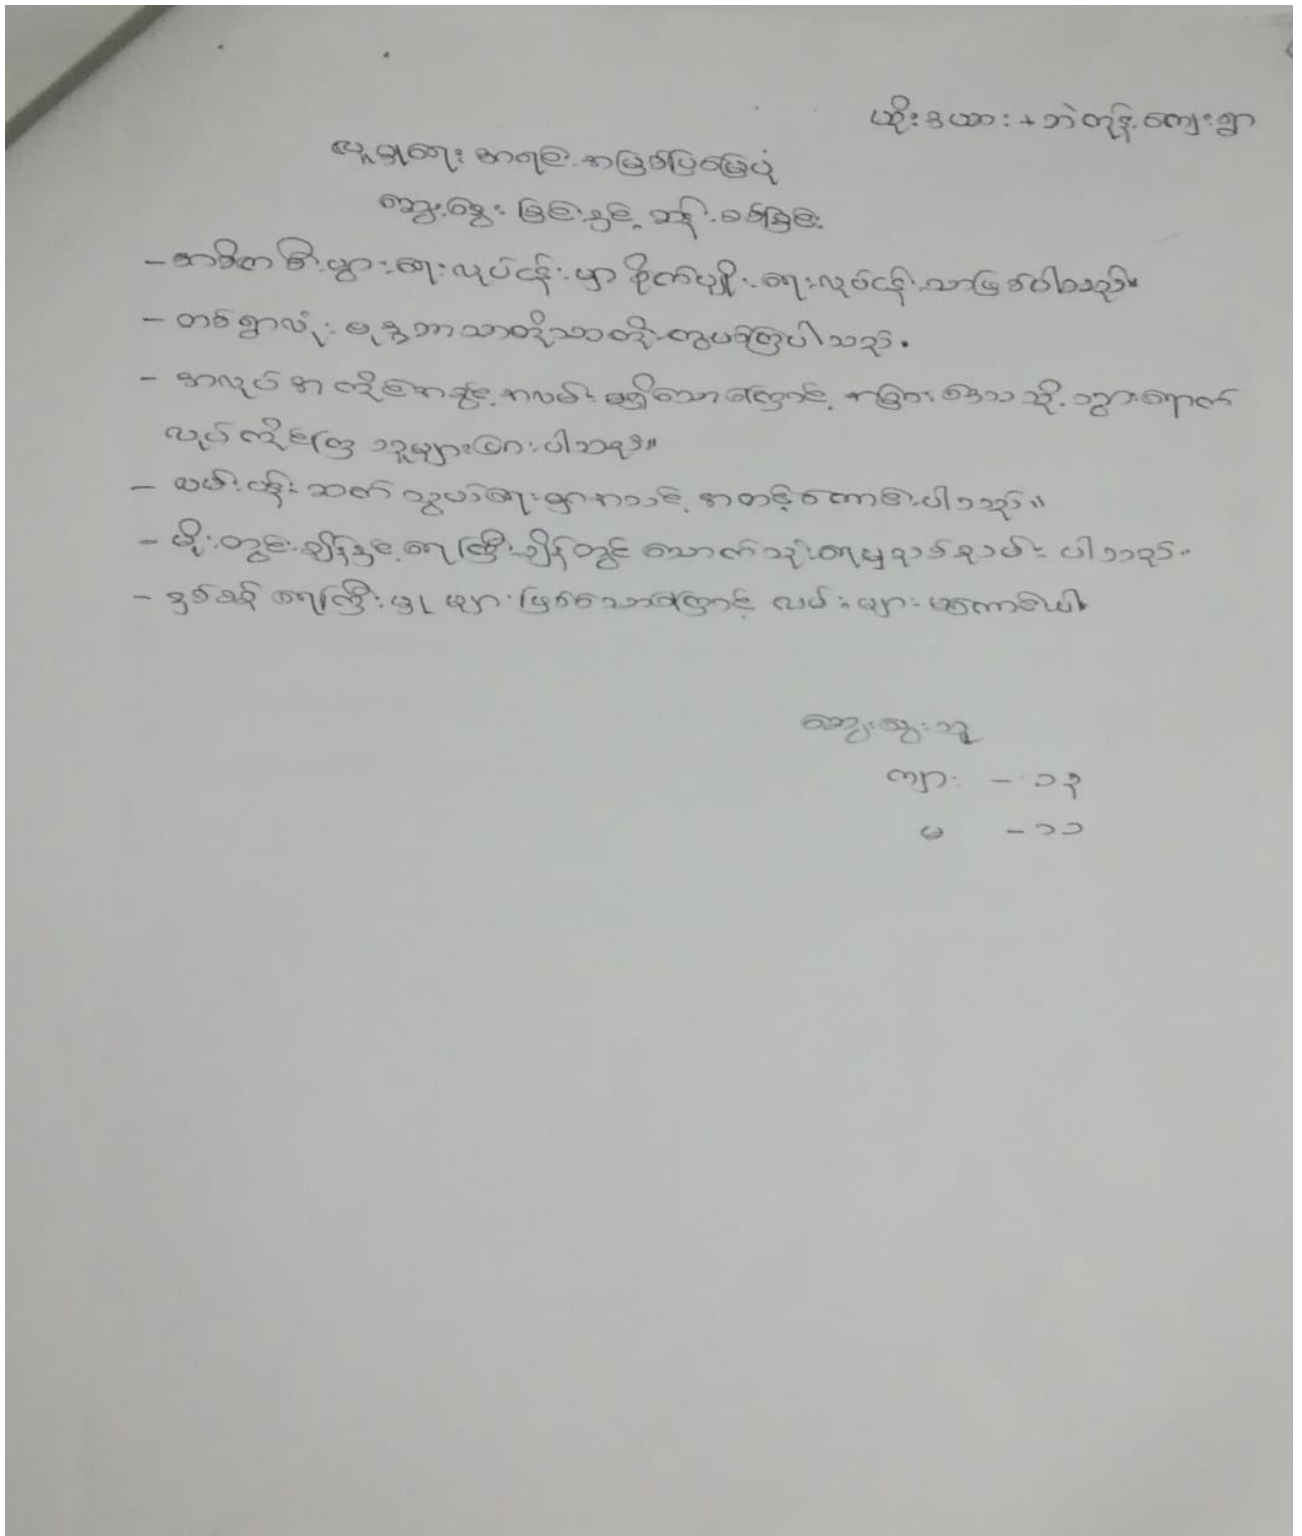 ယိုးဒယား + ဘဲတုန့် ကျေးရွာ
လူမှုရေး အရင်းအမြစ်ပြမြေပုံ
ဆွေးနွေးခြင်းနှင့် ဆန်းစစ်ခြင်း
- အဓိကစီးပွားရေးလုပ်ငန်းမှာ စိုက်ပျိုးရေးလုပ်ငန်းသာဖြစ်ပါသည်။
- တစ်ရွာလုံး ဗုဒ္ဓဘာသာကိုသာကိုးကွယ်ကြပါသည်။
- အလုပ်အကိုင်အခွင့်အလမ်းမရှိသောကြောင့် အခြားဒေသသို့ သွားရောက်
လုပ်ကိုင်ကြသူများများပါသည်။
- လမ်းပန်းဆက်သွယ်ရေးမှာအသင့်အတင့်ကောင်းပါသည်။
- မိုးတွင်းချိန်နှင့်ရေကြီးချိန်တွင် သောက်သုံးရေမှာ ပါသည်။
- နှစ်စဉ် ရေကြီးမှုများဖြစ်သောကြောင့် လမ်းများမကောင်းပါ
ဆွေးနွေးသူ
ကျား - ၁၃
မ - ၁၁